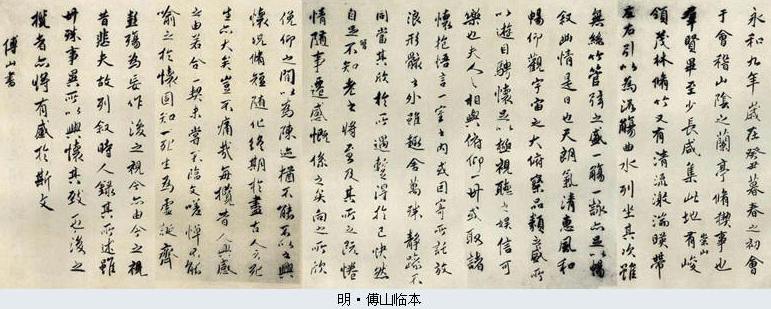 永和九年歲在癸丑暮春之初會
于會稽山陰之蘭亭脩禊事也
羣賢畢至少長咸集此地有崇山峻
領茂林脩竹又有清流激湍暎帶
左右引以為流觴曲水列坐其次雖
無絲竹管弦之盛一觴一詠亦足以暢
叙幽情是日也天朗氣清惠風和
暢仰觀宇宙之大俯察品類之盛所
以遊目騁懷足以極視聽之娛信可
樂也夫人之相與俯仰一世或取諸
懷抱悟言一室之內或因寄所託放
浪形骸之外雖趣舍萬殊靜躁不
同當其欣於所遇暫得於己快然
自足曾不知老之將至及其所之既惓
情隨事遷感慨係之矣向之所欣
俛仰之間以為陳迹猶不能不以之興
懷况脩短隨化終期於盡古人云死
生亦大矣豈不痛哉每攬昔人興感
之由若合一契未嘗不臨文嗟悼不能
喻之於懷固知一死生為虛誕齊
彭殤為妄作後之視今亦由今之視
昔悲夫故列叙時人錄其所述雖
世殊事異所以興懷其致一也後之
攬者亦將有感於斯文
傅山書
明·傅山临本